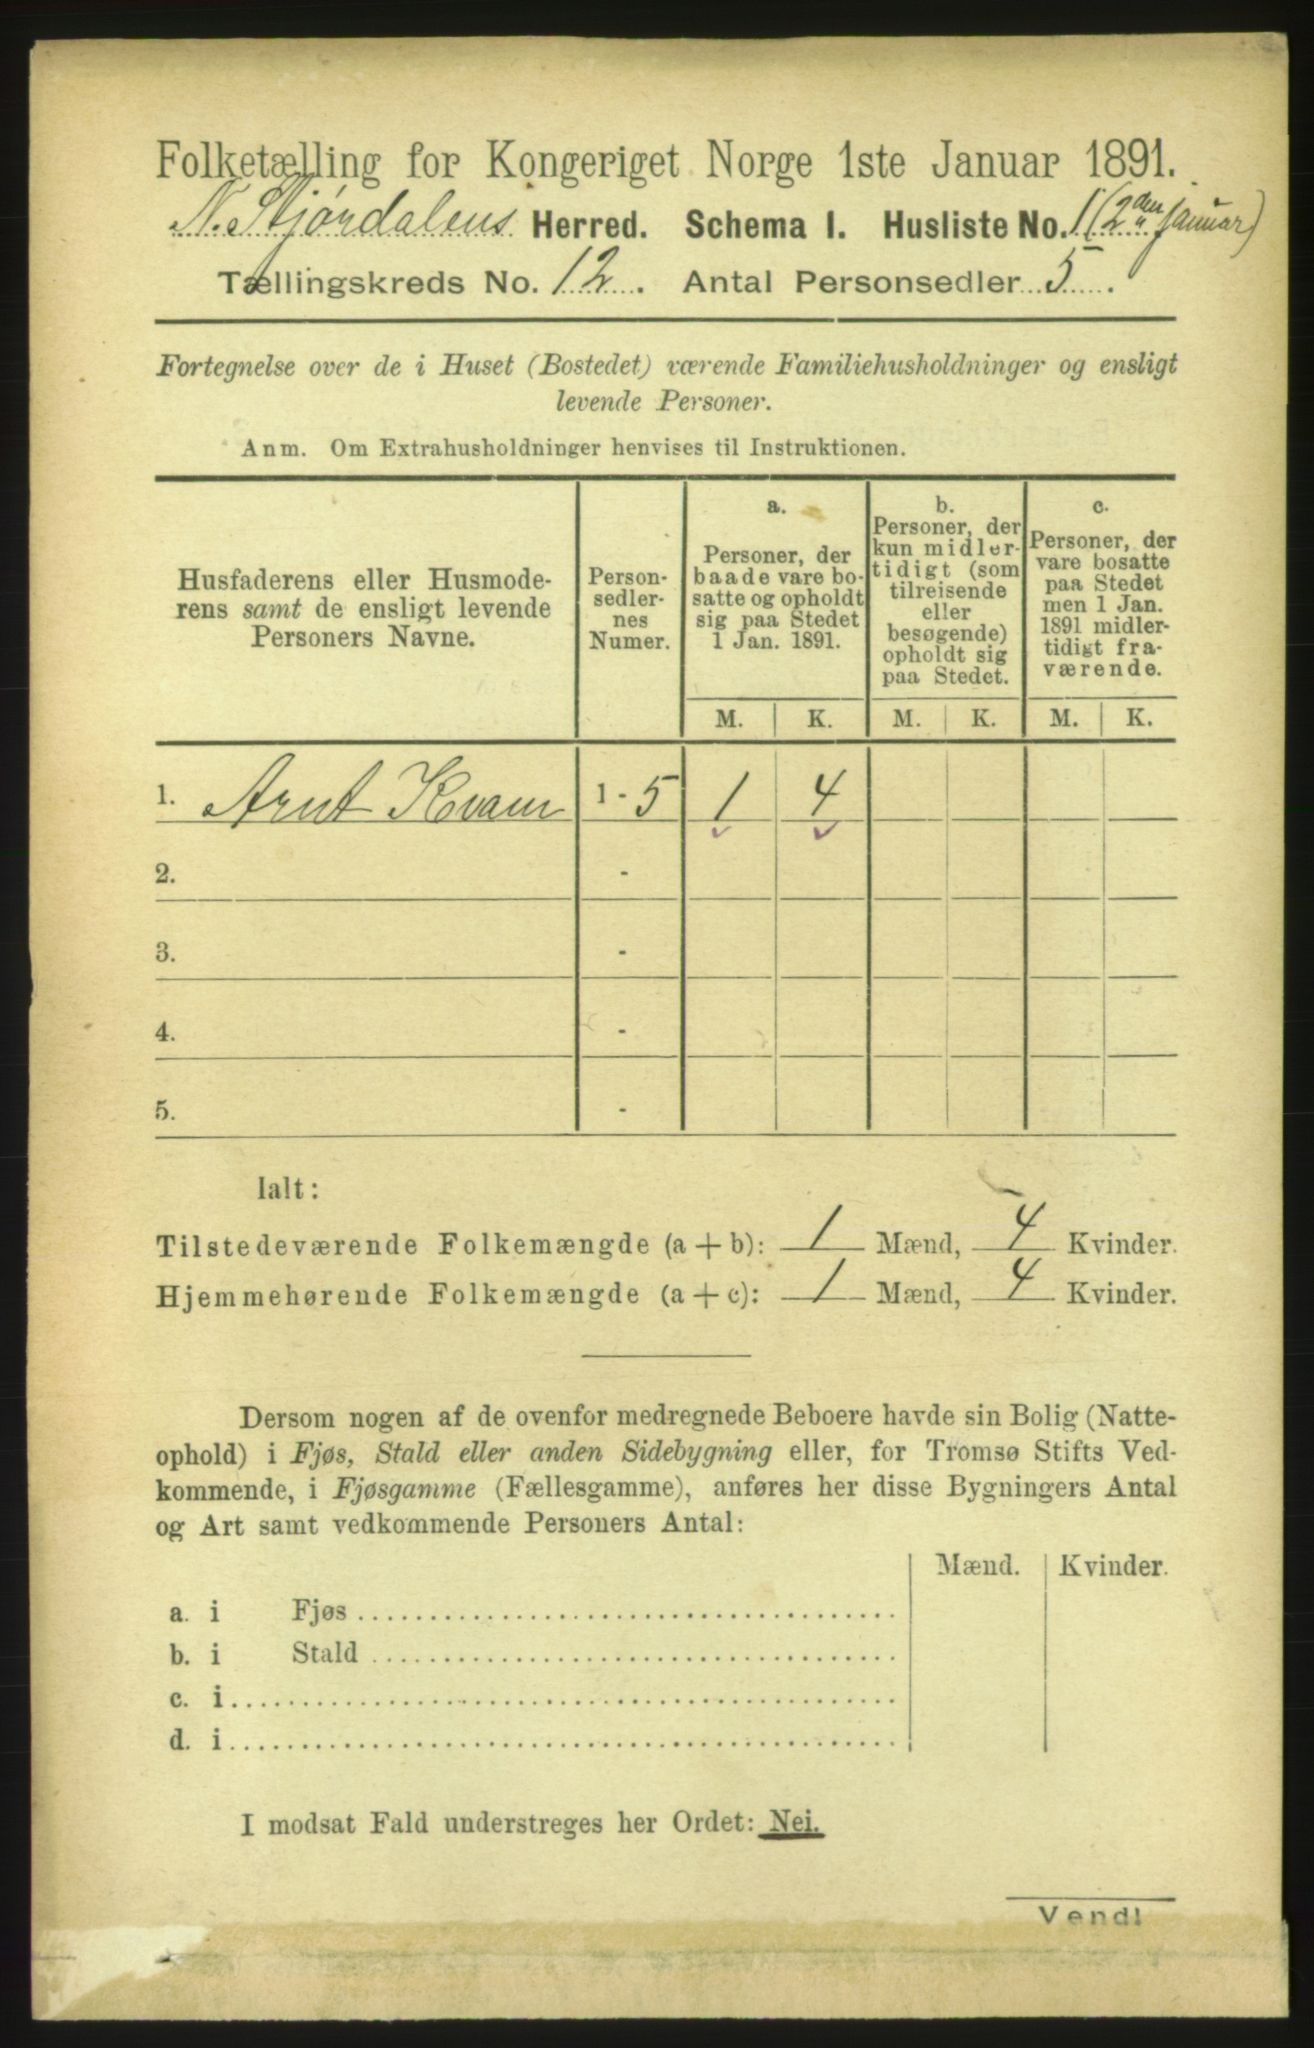 Folketælling for Kongeriget Norge 1ste Januar 1891.
N. Stjørdalens Herred. Schema I. Husliste No. 1 (2den januar)
Tællingskreds No. 12. Antal Personsedler 5.
Fortegnelse over de i Huset (Bostedet) værende Familiehusholdninger og ensligt
levende Personer.
Anm. Om Extrahusholdninger henvises til Instruktionen.
Husfaderens eller Husmode-
rens samt de ensligt levende
Personers Navne.
Person-
sedler-
nes
Numer.
a.
Personer, der
baade vare bo-
satte og opholdt
sig paa Stedet
1 Jan. 1891.
b.
Personer, der
kun midler-
tidigt (som
tilreisende
eller
besøgende)
opholdt sig
paa Stedet.
c.
Personer, der
vare bosatte
paa Stedet
men 1 Jan.
1891 midler-
tidigt fra-
værende.
M. K. M. K. M. K.
1. Arnt Kvam 1 - 5 1 4
2. -
3. -
4. -
5. -
Ialt:
Tilstedeværende Folkemængde (a + b): 1 Mænd, 4 Kvinder.
Hjemmehørende Folkemængde (a + c): 1 Mænd, 4 Kvinder.
Dersom nogen af de ovenfor medregnede Beboere havde sin Bolig (Natte-
ophold) i Fjøs, Stald eller anden Sidebygning eller, for Tromsø Stifts Ved-
kommende, i Fjøsgamme (Fællesgamme), anføres her disse Bygningers Antal
og Art samt vedkommende Personers Antal:
Mænd. Kvinder.
a. i Fjøs
b. i Stald
c. i
d. i
I modsat Fald understreges her Ordet: Nei.
Vend!